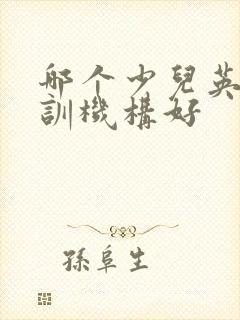 那个少兒英
訓機構好
孫阜生